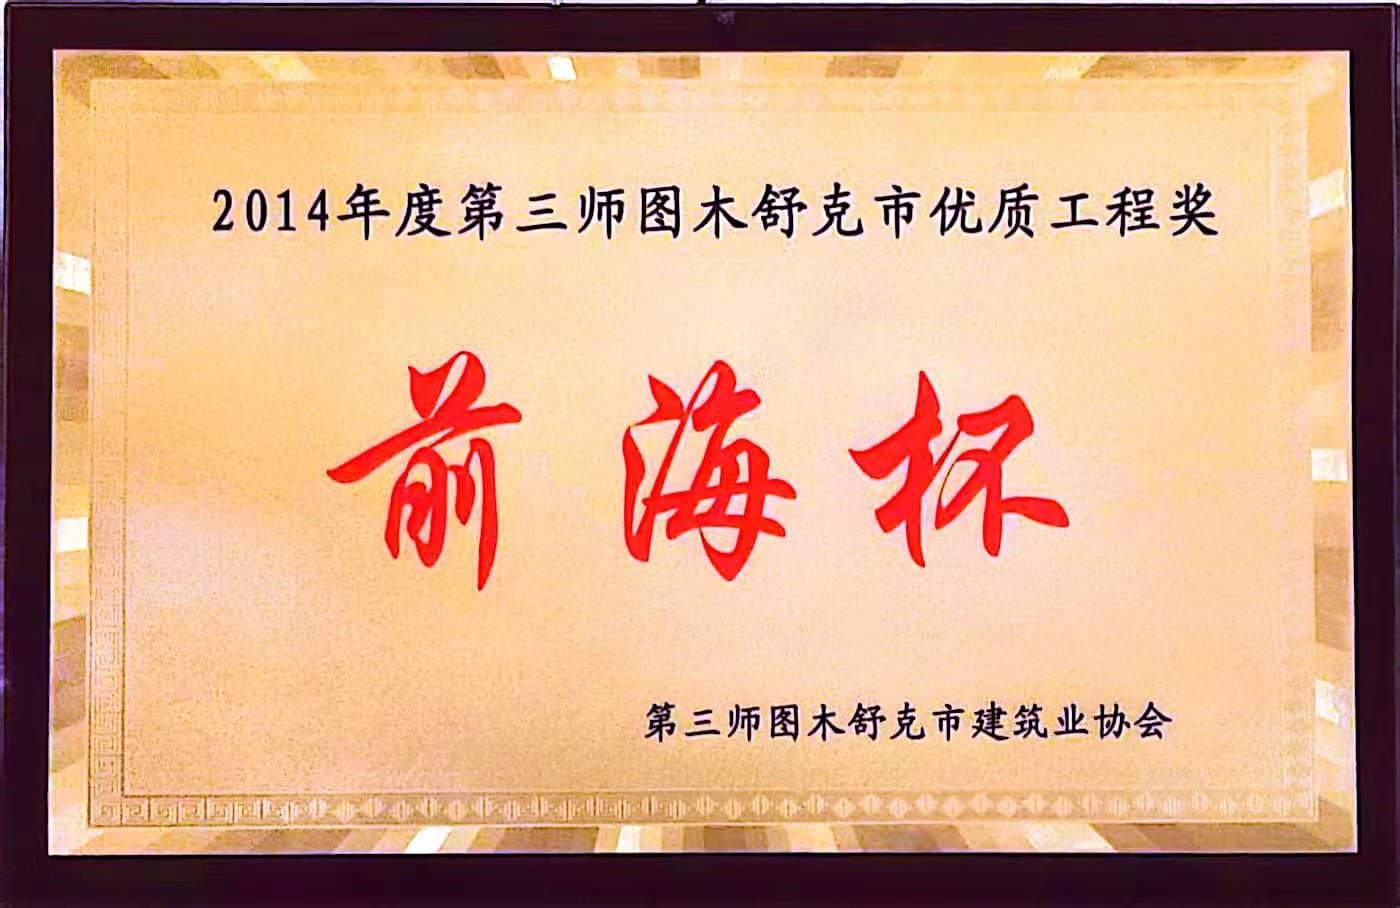 2014年度第三师图木舒克市优质工程奖
前海杯
第三师图木舒克市建筑业协会